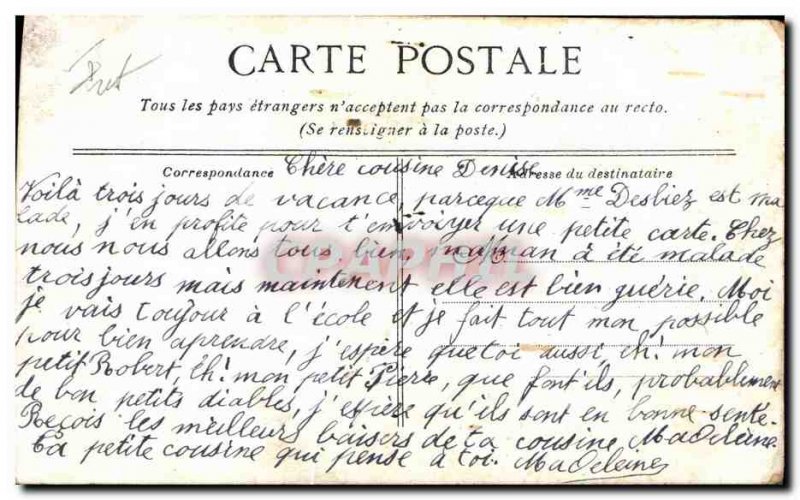 CARTE POSTALE
Tous les pays étrangers n'acceptent pas la correspondance au recto.
(Se renseigner à la poste.)
Correspondance Chère cousine Denise Adresse du destinataire
Voilà trois jours de vacance, parceque Mme Desbiez est ma
lade, j'en profite pour t'envoyer une petite carte. Chez
nous nous allons tous bien, maman à été malade
trois jours mais maintenent elle est bien guérie. Moi
je vais toujour à l'école et je fait tout mon possible
pour bien aprendre, j'espère que toi aussi, eh! mon
petit Robert, Eh! mon petit Pierre, que font'ils, probablement
de bon petits diables, j'espère qu'ils sont en bonne senté.
Reçois les meilleurs baisers de ta cousine Madeleine.
Ta petite cousine qui pense à toi. Madeleine